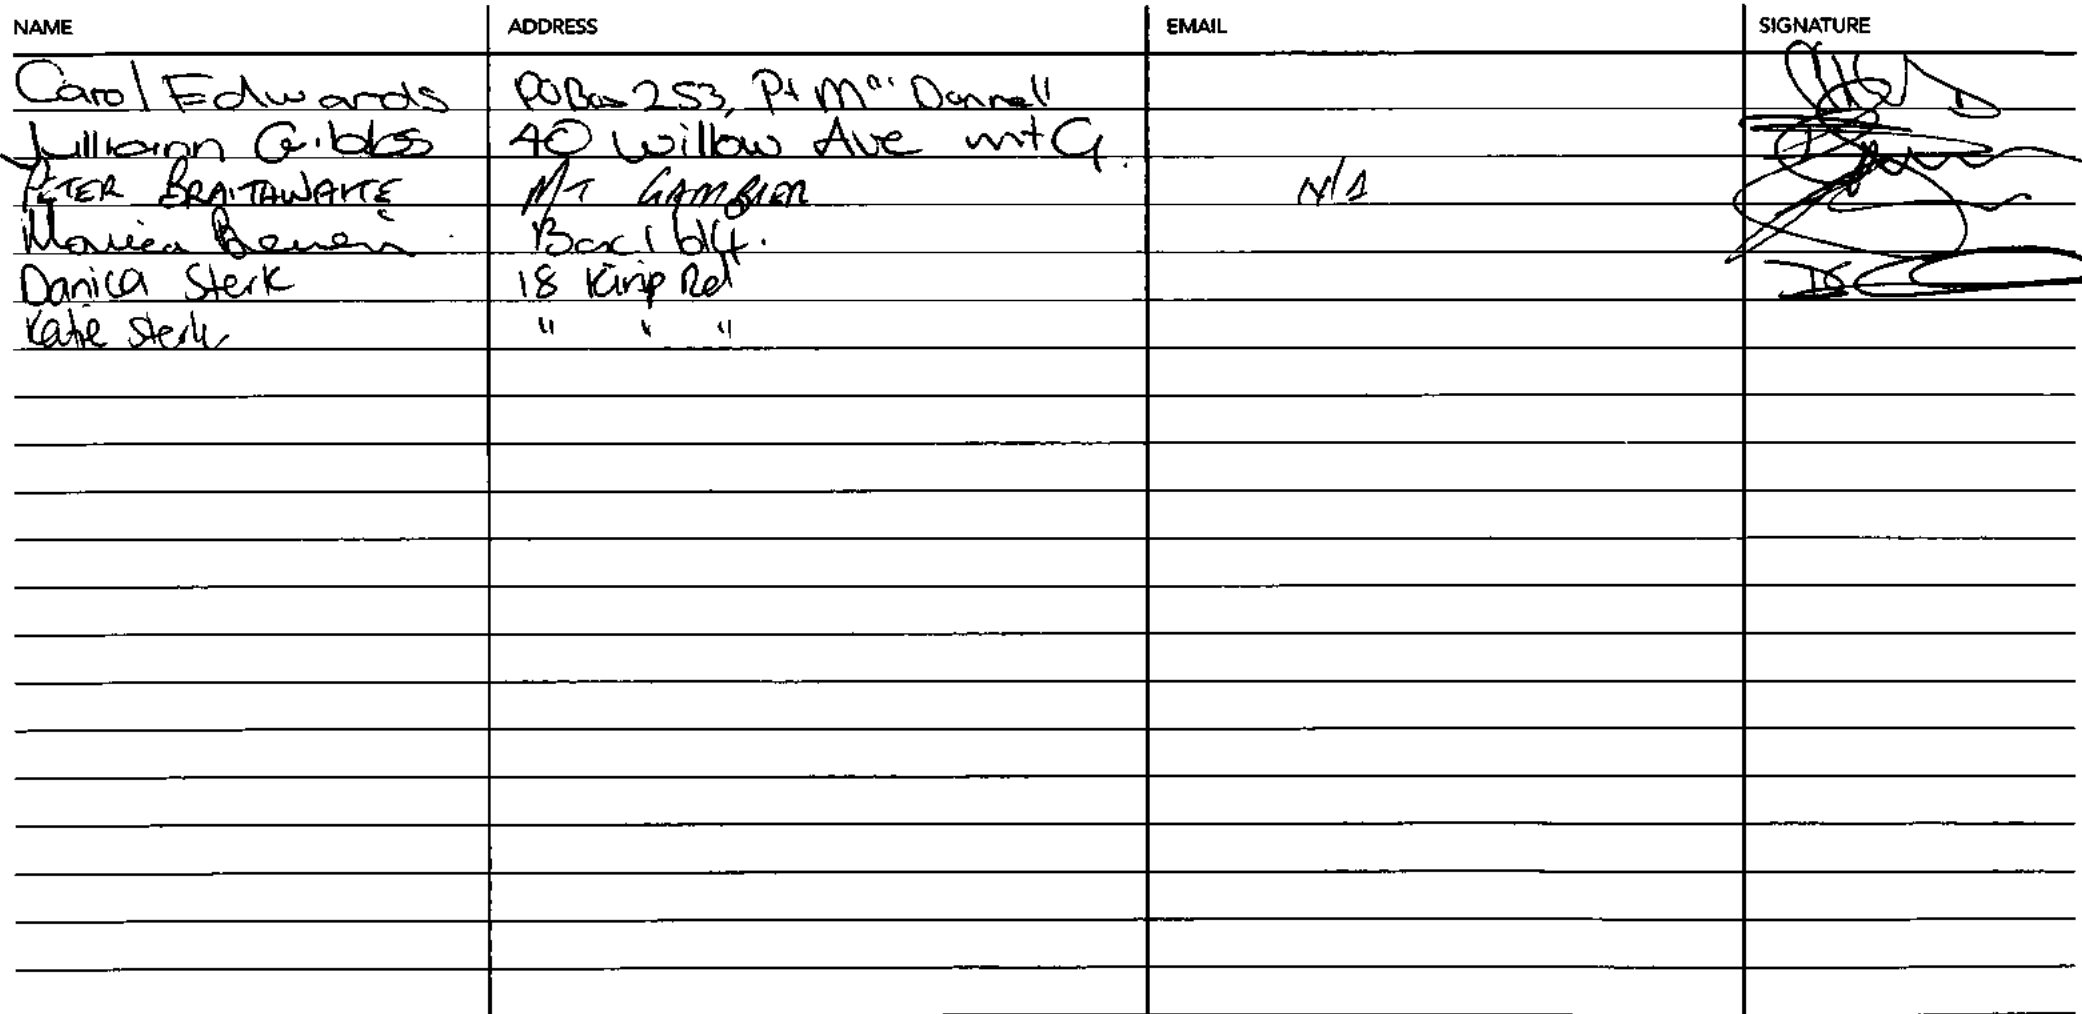 NAME ADDRESS EMAIL SIGNATURE
Carol Edwards PO Box 253, Pt Mac Donnell
Jullieann Gibbs 40 Willow Ave mt G.
PETER BRAITHWAITE MT GAMBIER N/A
Monica Box 1614.
Danica Sterk 18 Rd
Katie Sterk " " "